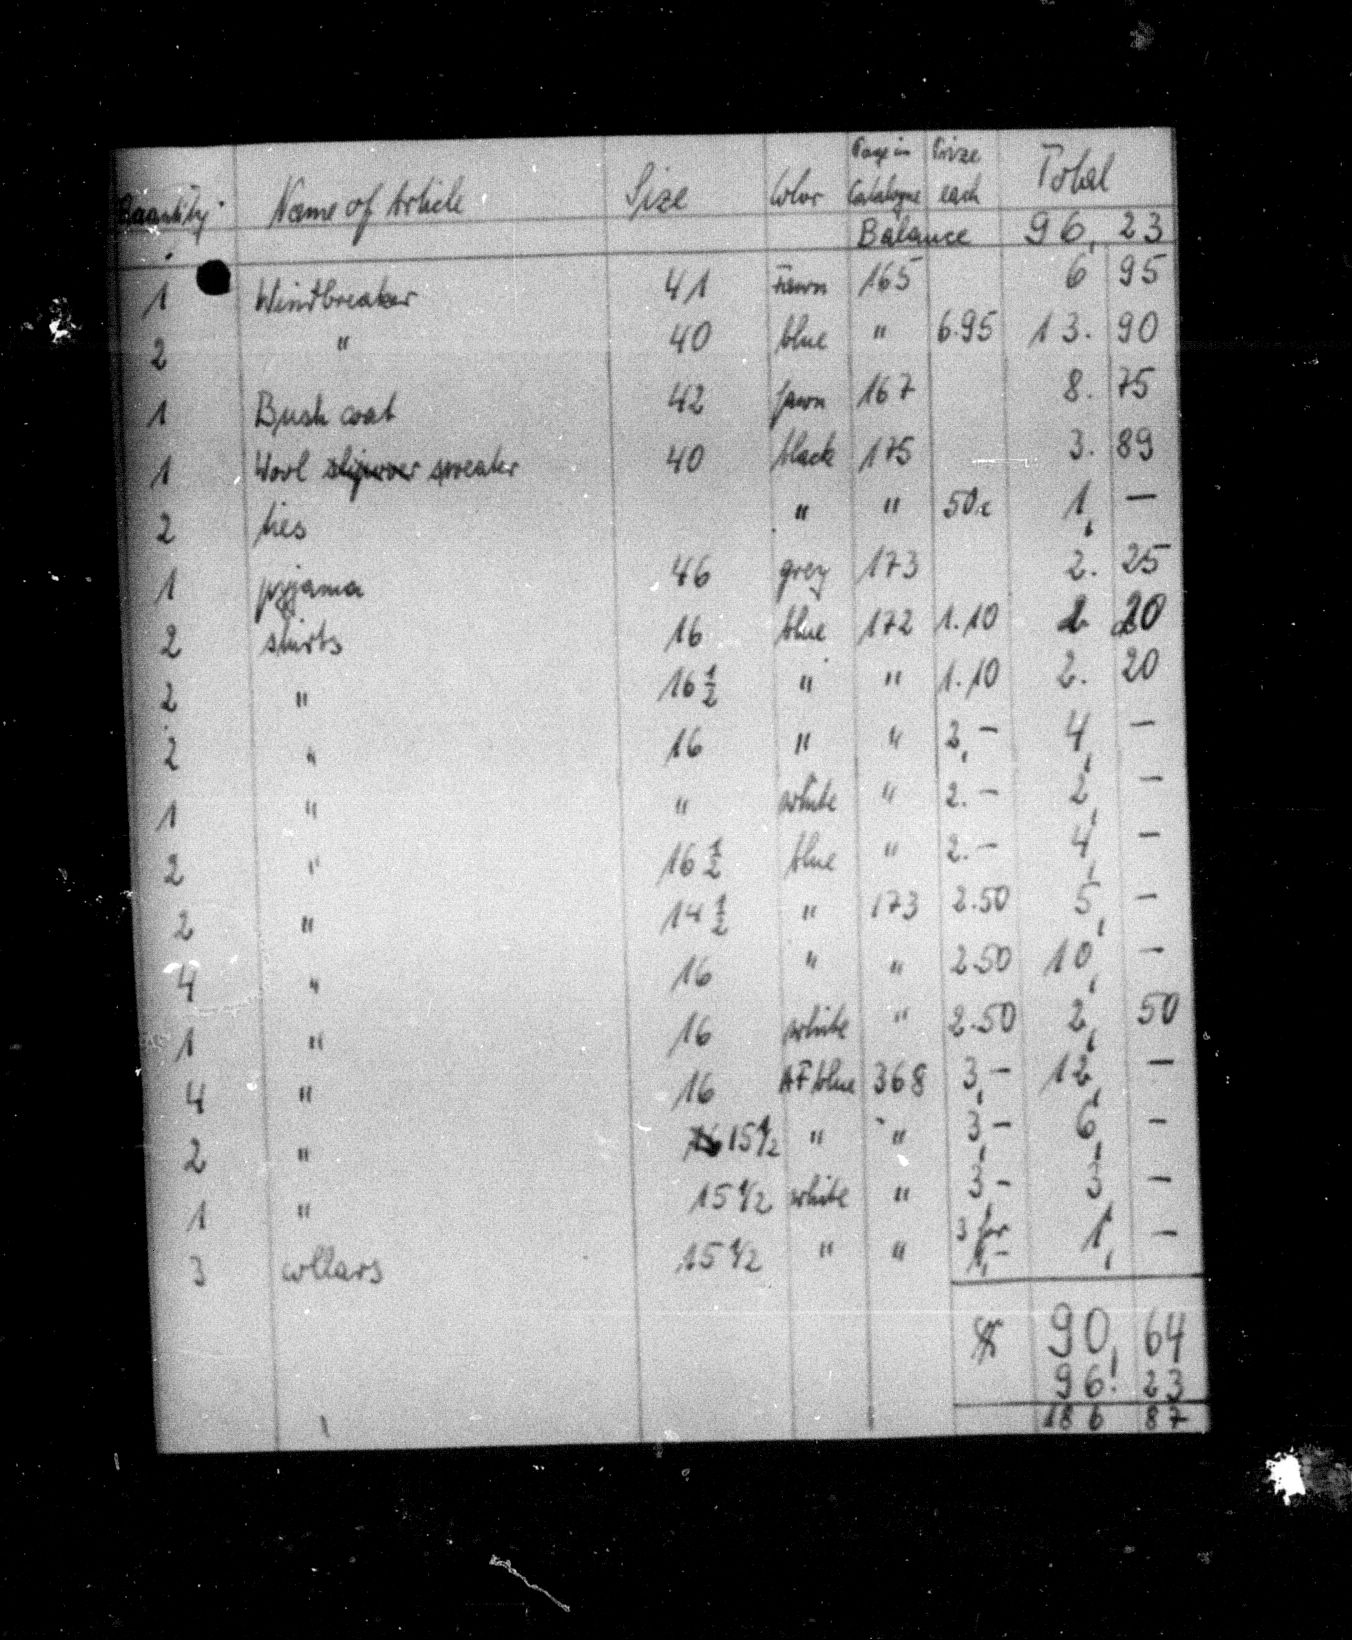 Quantity Name of Article Size Color Page in Catalogue Prize each Total
Balance 96, 23
1 Windbreaker 41 Fawn 165 6 95
2 " 40 blue " 6.95 13. 90
1 Bush coat 42 fawn 167 8. 75
1 Wool slipover sweater 40 black 175 3. 89
2 ties " " 50c 1, —
1 pyjama 46 grey 173 2. 25
2 shirts 16 blue 172 1.10 2 20
2 " 16 1/2 " " 1.10 2. 20
2 " 16 " " 2,- 4, —
1 " " white " 2.- 2, —
2 " 16 1/2 blue " 2.- 4, —
2 " 14 1/2 " 173 2.50 5, —
4 " 16 " " 2.50 10, —
1 " 16 white " 2.50 2, 50
4 " 16 AF blue 368 3,- 12, —
2 " 15 1/2 " " 3,- 6, —
1 " 15 1/2 white " 3,- 3, —
3 collars 15 1/2 " " 3 for 1,- 1, —
$ 90, 64
96! 23
186 87